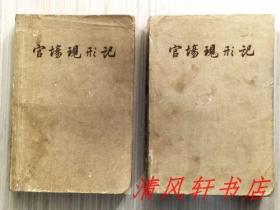 官場現形記
官場現形記
清风轩书店